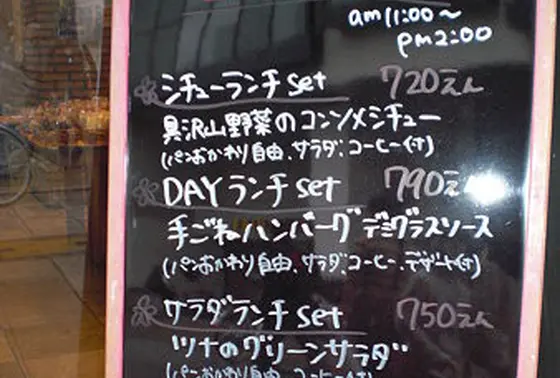 am11:00～
pm2:00
シチューランチset 720えん
具沢山野菜のコンソメシチュー
(パンおかわり自由、サラダ、コーヒー付)
DAYランチset 790えん
手ごねハンバーグデミグラスソース
(パンおかわり自由、サラダ、コーヒー、デザート付)
サラダランチset 750えん
ツナのグリーンサラダ
(パンおかわり自由、